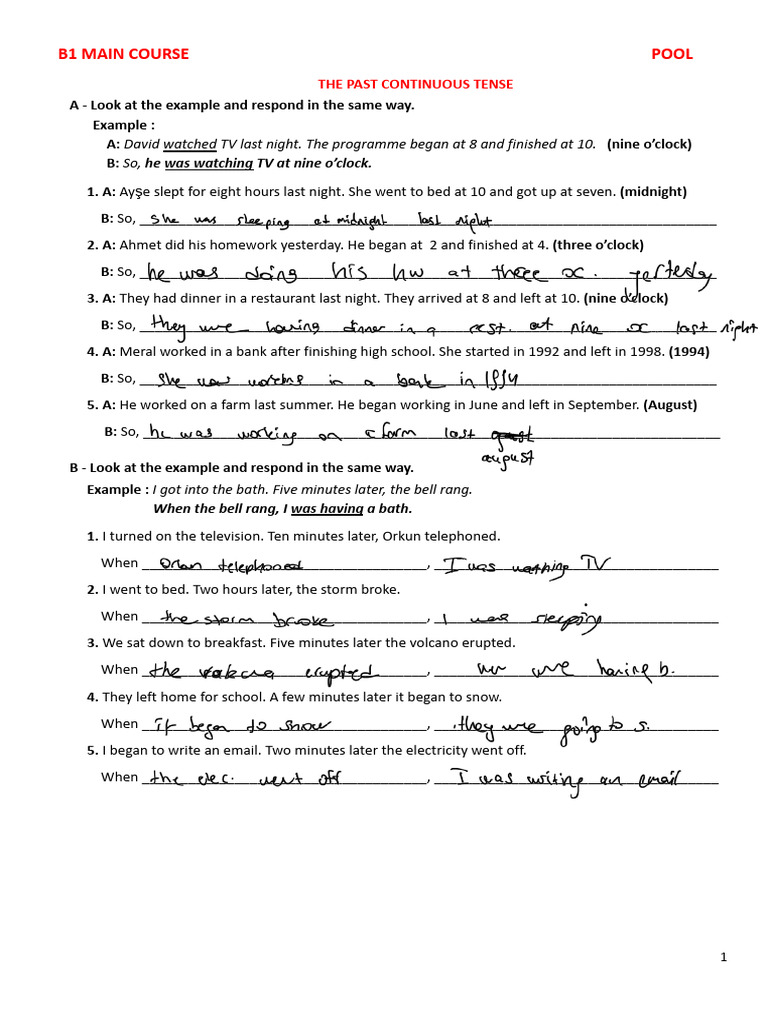 B1 MAIN COURSE POOL
THE PAST CONTINUOUS TENSE
A - Look at the example and respond in the same way.
Example :
A: David watched TV last night. The programme began at 8 and finished at 10. (nine o’clock)
B: So, he was watching TV at nine o’clock.
1. A: Ayşe slept for eight hours last night. She went to bed at 10 and got up at seven. (midnight)
B: So, she was sleeping at midnight last night
2. A: Ahmet did his homework yesterday. He began at 2 and finished at 4. (three o’clock)
B: So, he was doing his hw at three oc. yesterday
3. A: They had dinner in a restaurant last night. They arrived at 8 and left at 10. (nine o’clock)
B: So, they were having dinner in a rest. at nine oc last night
4. A: Meral worked in a bank after finishing high school. She started in 1992 and left in 1998. (1994)
B: So, she was working in a bank in 1994
5. A: He worked on a farm last summer. He began working in June and left in September. (August)
B: So, he was working on a farm last
august
B - Look at the example and respond in the same way.
Example : I got into the bath. Five minutes later, the bell rang.
When the bell rang, I was having a bath.
1. I turned on the television. Ten minutes later, Orkun telephoned.
When Orkun telephoned, I was watching TV
2. I went to bed. Two hours later, the storm broke.
When the storm broke, I was sleeping
3. We sat down to breakfast. Five minutes later the volcano erupted.
When the volcano erupted, we were having b.
4. They left home for school. A few minutes later it began to snow.
When it began to snow, they were going to s.
5. I began to write an email. Two minutes later the electricity went off.
When the elec. went off, I was writing an email
1